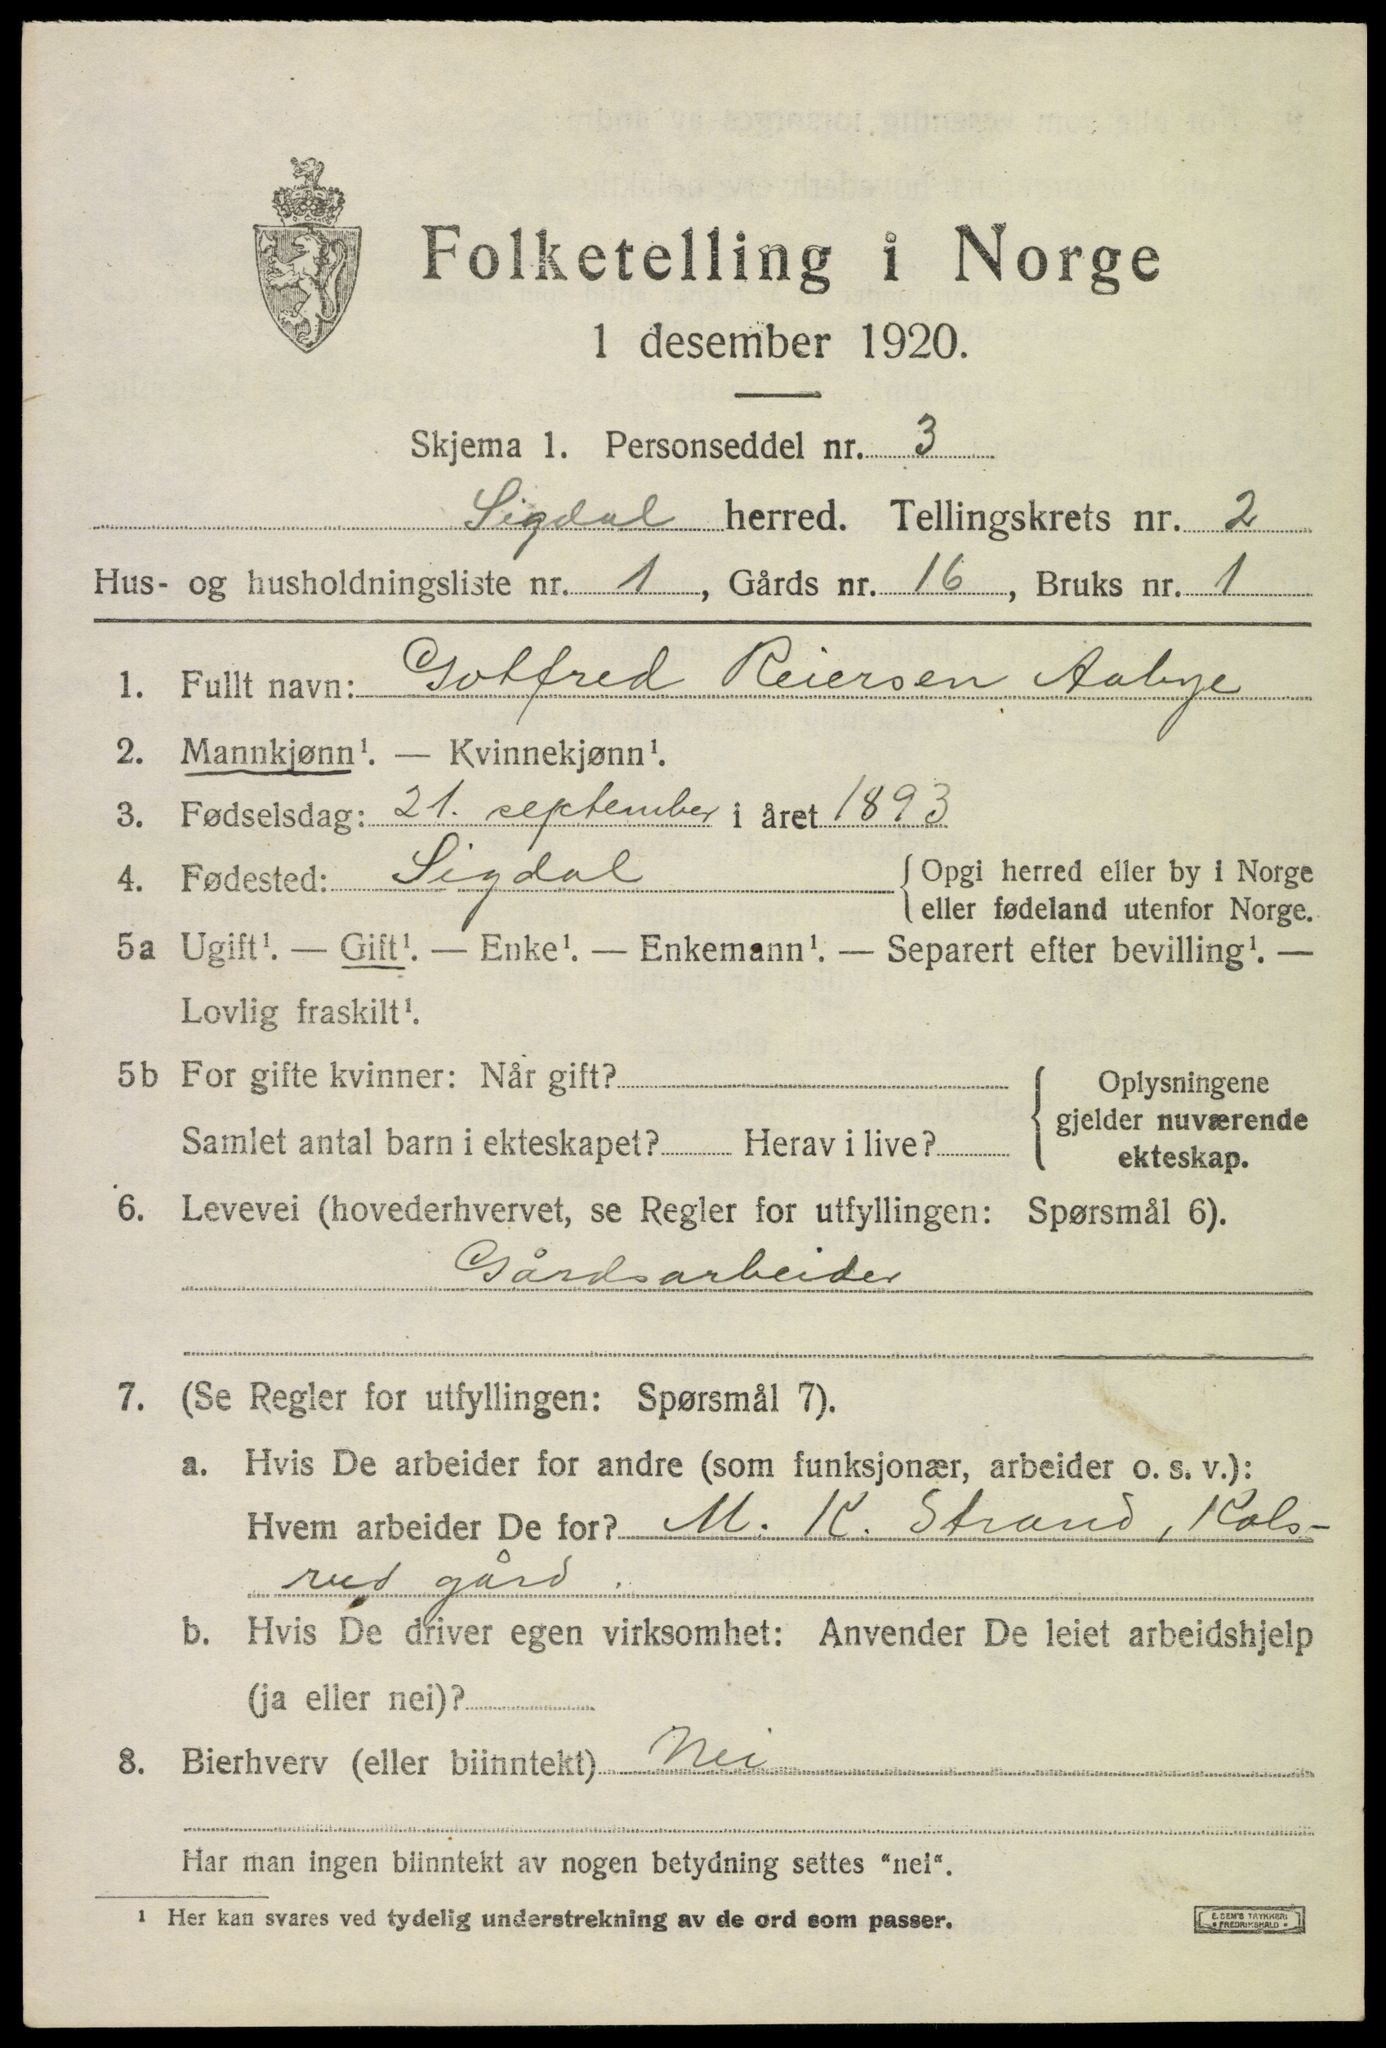 Folketelling i Norge
1 desember 1920.
Skjema 1. Personseddel nr. 3
Sigdal herred. Tellingskrets nr. 2
Hus- og husholdningsliste nr. 1, Gårds nr. 16, Bruks nr. 1
1. Fullt navn: Gotfred Reiersen Aabye
2. Mannkjønn¹. — Kvinnekjønn¹.
3. Fødselsdag: 21. september i året 1893
4. Fødested: Sigdal { Opgi herred eller by i Norge
eller fødeland utenfor Norge.
5a Ugift¹. — Gift¹. — Enke¹. — Enkemann¹. — Separert efter bevilling¹. —
Lovlig fraskilt¹.
5b For gifte kvinner: Når gift? { Oplysningene
gjelder nuværende
Samlet antal barn i ekteskapet? Herav i live?
ekteskap.
6. Levevei (hovederhvervet, se Regler for utfyllingen: Spørsmål 6).
Gårdsarbeider
7. (Se Regler for utfyllingen: Spørsmål 7).
a. Hvis De arbeider for andre (som funksjonær, arbeider o. s. v.):
Hvem arbeider De for? M. K. Strand, Kols-
rud gård.
b. Hvis De driver egen virksomhet: Anvender De leiet arbeidshjelp
(ja eller nei)?
8. Bierhverv (eller biinntekt) Nei
Har man ingen biinntekt av nogen betydning settes "nei".
¹ Her kan svares ved tydelig understrekning av de ord som passer.
E. SEM'S TRYKKERI
• FREDRIKSHALD •